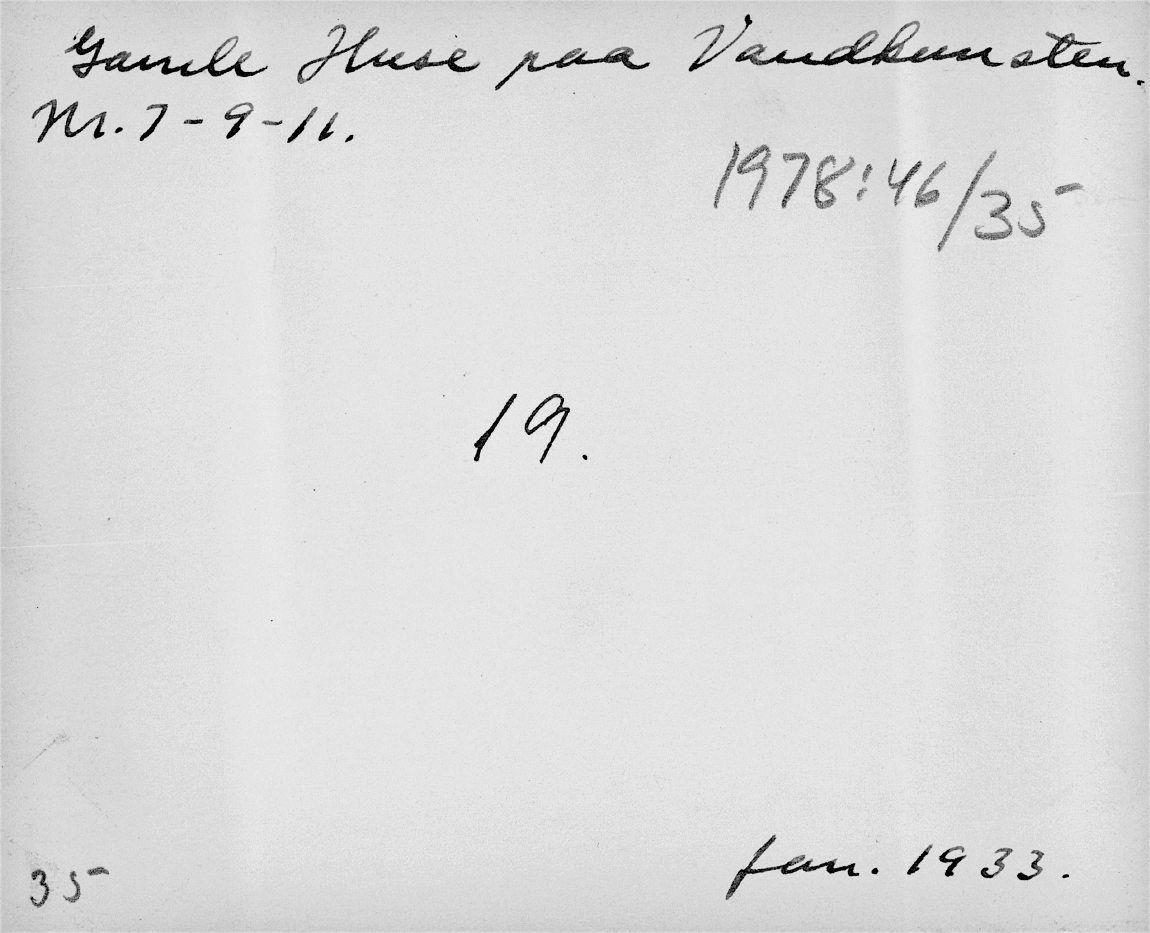 Gamle Huse paa Vandkunsten.
Nr. 7-9-11.
1978:46/35
19.
Jan. 1933.
35